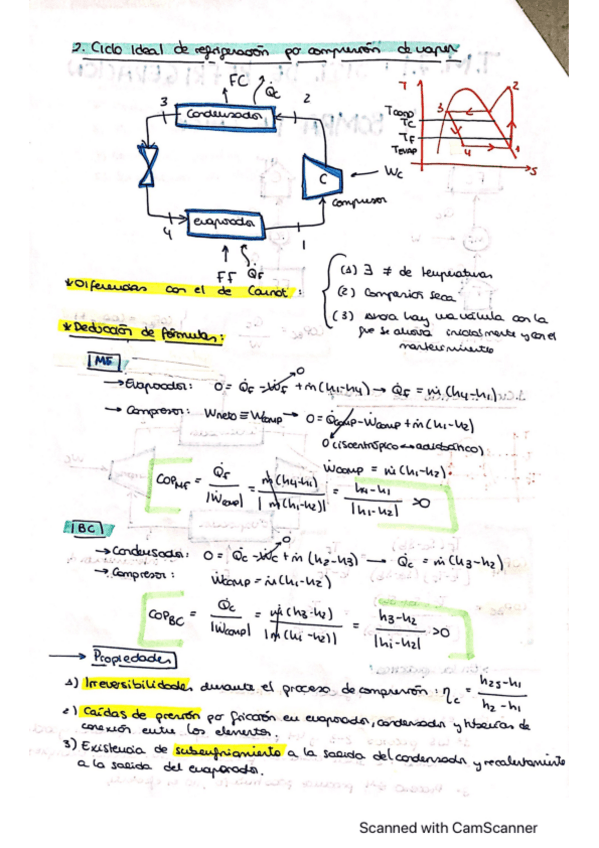 2. Ciclo Ideal de refrigeración por compresión de vapor
FC Q̇c
3 2
Condensador
C
Wc
compresor
evaporador
4 1
FF Q̇F
T
2
3
TCOND
TC
TF
TEVAP
4 1
S
* Diferencias con el de Carnot:
(1) ∃ ≠ de temperaturas
(2) Compresión seca
(3) ahora hay una válvula con la
que se ahorra inicialmente y en el
mantenimiento
* Deducción de fórmulas:
MF
→ Evaporador: 0 = Q̇F - ẆF + ṁ(h1-h4) → Q̇F = ṁ(h4-h1)
0
→ Compresor: Wneto ≡ Wcomp → 0 = Q̇comp - Ẇcomp + ṁ(h1-h2)
0 (isoentrópico ↔ adiabático)
Ẇcomp = ṁ(h1-h2)
COPMF = Q̇F / |Ẇcomp| = ṁ(h4-h1) / |ṁ(h1-h2)| = h4-h1 / |h1-h2| >0
BC
→ Condensador: 0 = Q̇c - Ẇc + ṁ(h2-h3) → Q̇c = ṁ(h3-h2)
0
→ Compresor: Ẇcomp = ṁ(h1-h2)
COPBC = Q̇c / |Ẇcomp| = ṁ(h3-h2) / |ṁ(h1-h2)| = h3-h2 / |h1-h2| >0
→ Propiedades
1) Irreversibilidades durante el proceso de compresión: ηc = h2s-h1 / h2-h1
2) Caídas de presión por fricción en evaporador, condensador y tuberías de
conexión entre los elementos.
3) Existencia de subenfriamiento a la salida del condensador y recalentamiento
a la salida del evaporador.
Scanned with CamScanner